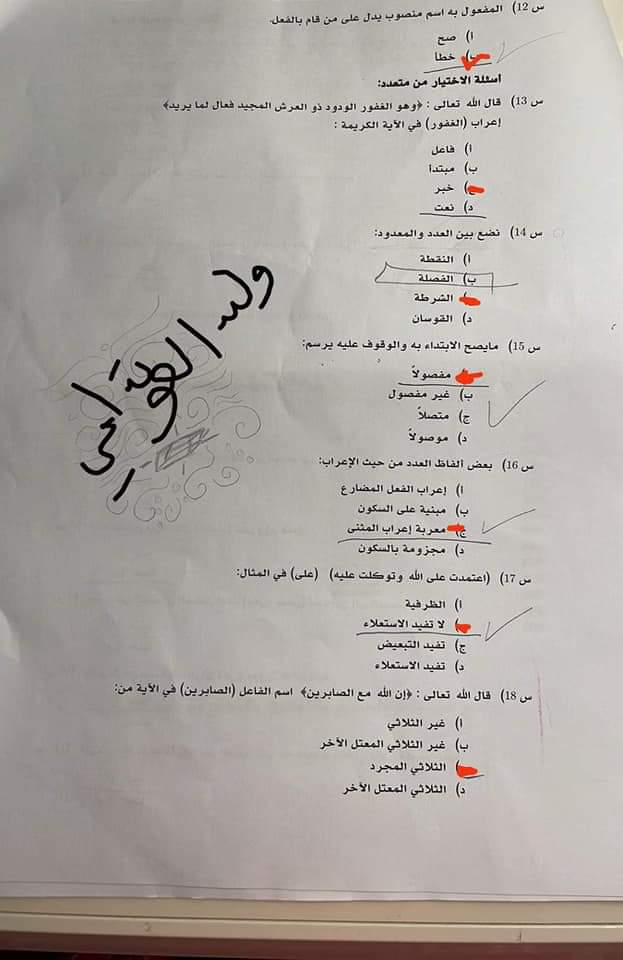 س 12) المفعول به اسم منصوب يدل على من قام بالفعل.
أ) صح
ب) خطأ
أسئلة الاختيار من متعدد:
س 13) قال الله تعالى : ﴿وهو الغفور الودود ذو العرش المجيد فعال لما يريد﴾
إعراب (الغفور) في الآية الكريمة :
أ) فاعل
ب) مبتدأ
ج) خبر
د) نعت
س 14) نضع بين العدد والمعدود:
أ) النقطة
ب) الفصلة
الشرطة
د) القوسان
س 15) مايصح الابتداء به والوقوف عليه يرسم:
مفصولاً
ب) غير مفصول
ج) متصلاً
د) موصولاً
س 16) بعض ألفاظ العدد من حيث الإعراب:
أ) إعراب الفعل المضارع
ب) مبنية على السكون
ج) معربة إعراب المثنى
د) مجزومة بالسكون
س 17) (اعتمدت على الله وتوكلت عليه) (على) في المثال:
أ) الظرفية
لا تفيد الاستعلاء
ج) تفيد التبعيض
د) تفيد الاستعلاء
س 18) قال الله تعالى : ﴿إن الله مع الصابرين﴾ اسم الفاعل (الصابرين) في الآية من:
أ) غير الثلاثي
ب) غير الثلاثي المعتل الآخر
الثلاثي المجرد
د) الثلاثي المعتل الآخر
وليد